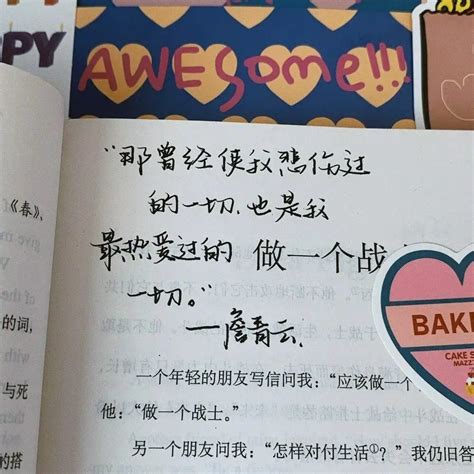 PPY
AWESOME!!!
“那曾经使我悲伤过
的一切,也是我
最热爱过的
一切。”
—詹青云
做一个战
《春》、
的词,
与死
的搭
BAKE
CAKE S
MAZZ
一个年轻的朋友写信问我:“应该做一个
他:“做一个战士。”
另一个朋友问我:“怎样对付生活①?”我仍旧答